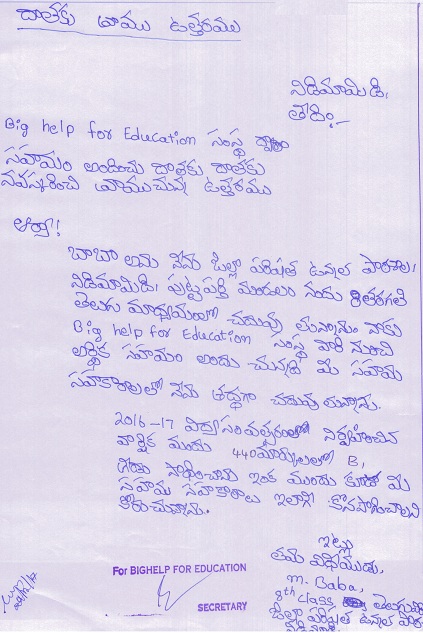 దాతకు వ్రాయు ఉత్తరము
నిడిమామిడి,
తేదిః-
Big help for Education సంస్థ ద్వారా
సహాయం అందించు దాతకు దాతకు
నమస్కరించి వ్రాయుచున్న ఉత్తరము
ఆర్యా!!
బాబా అను నేను జిల్లా పరిషత్ ఉన్నత పాఠశాల,
నిడిమామిడి, పుట్టపర్తి మండలం నందు 8తరగతి
తెలుగు మాధ్యమంలో చదువు తున్నాను నాకు
Big help for Education సంస్థ వారి నుంచి
ఆర్థిక సహాయం అందు చున్నది మీ సహాయ
సహకారాలతో నేను శ్రద్ధగా చదువు తున్నాను.
2016-17 విద్యాసంవత్సరంలో నిర్వహించిన
వార్షిక 440మార్కులతో B,
గ్రేడు సాధించాను ఇంక ముందు కూడా మీ
సహాయ సహకారాలు ఇలాగే కొనసాగించాలని
కోరుచున్నాను.
ఇట్లు
తమ విధేయుడు,
M. Baba,
8th class, తెలుగు
జిల్లా పరిషత్ ఉన్నత పాఠ
For BIGHELP FOR EDUCATION
SECRETARY